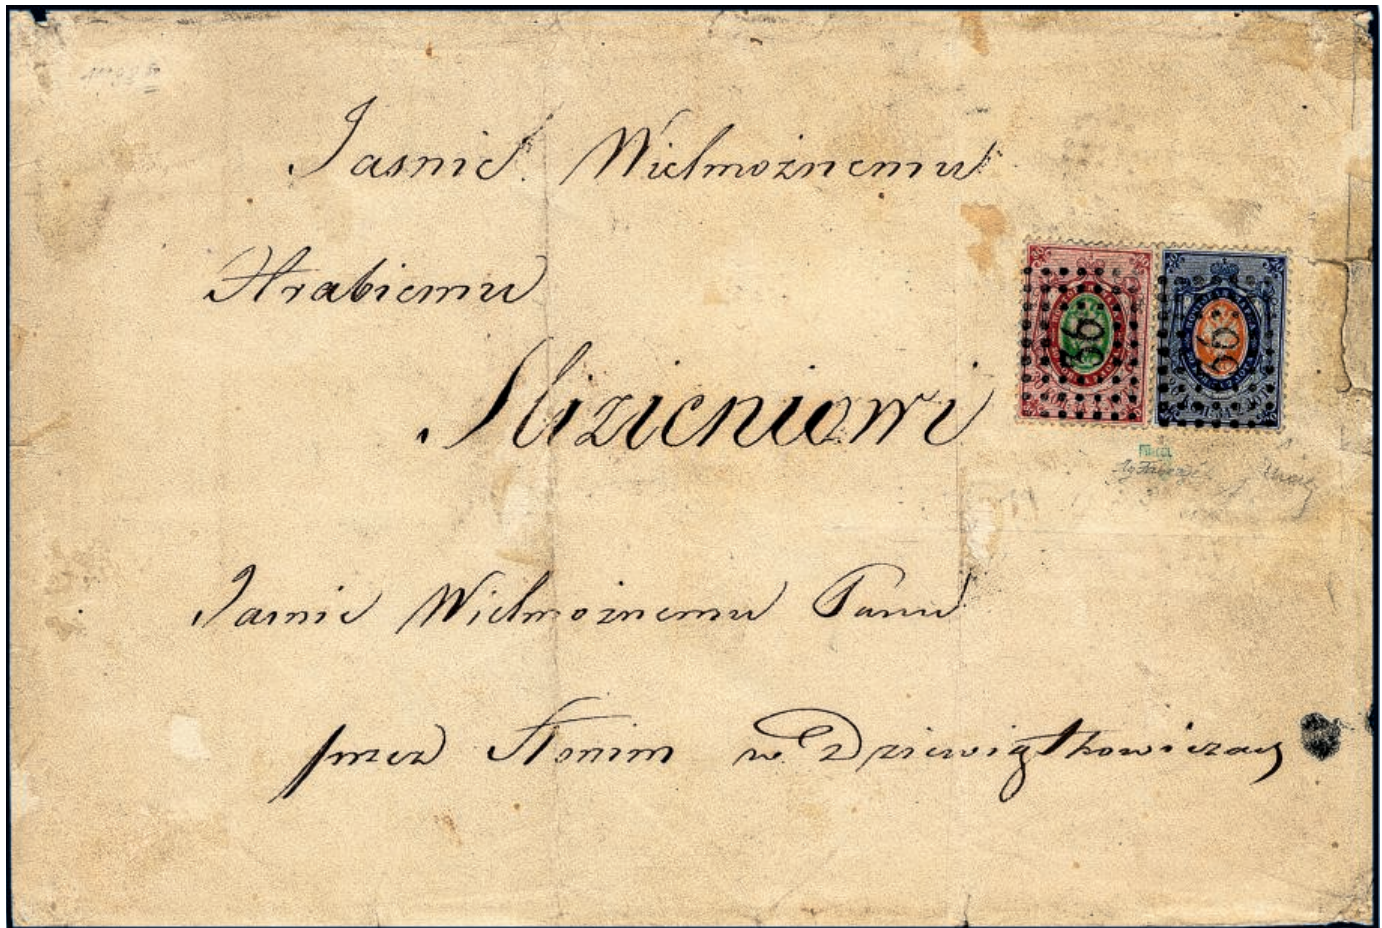 Jasnie Wielmożnemu
Hrabiemu
Slizieniowi
36
36
Jasnie Wielmożnemu Panu
przez Słonim w Dziewiątkowiczach